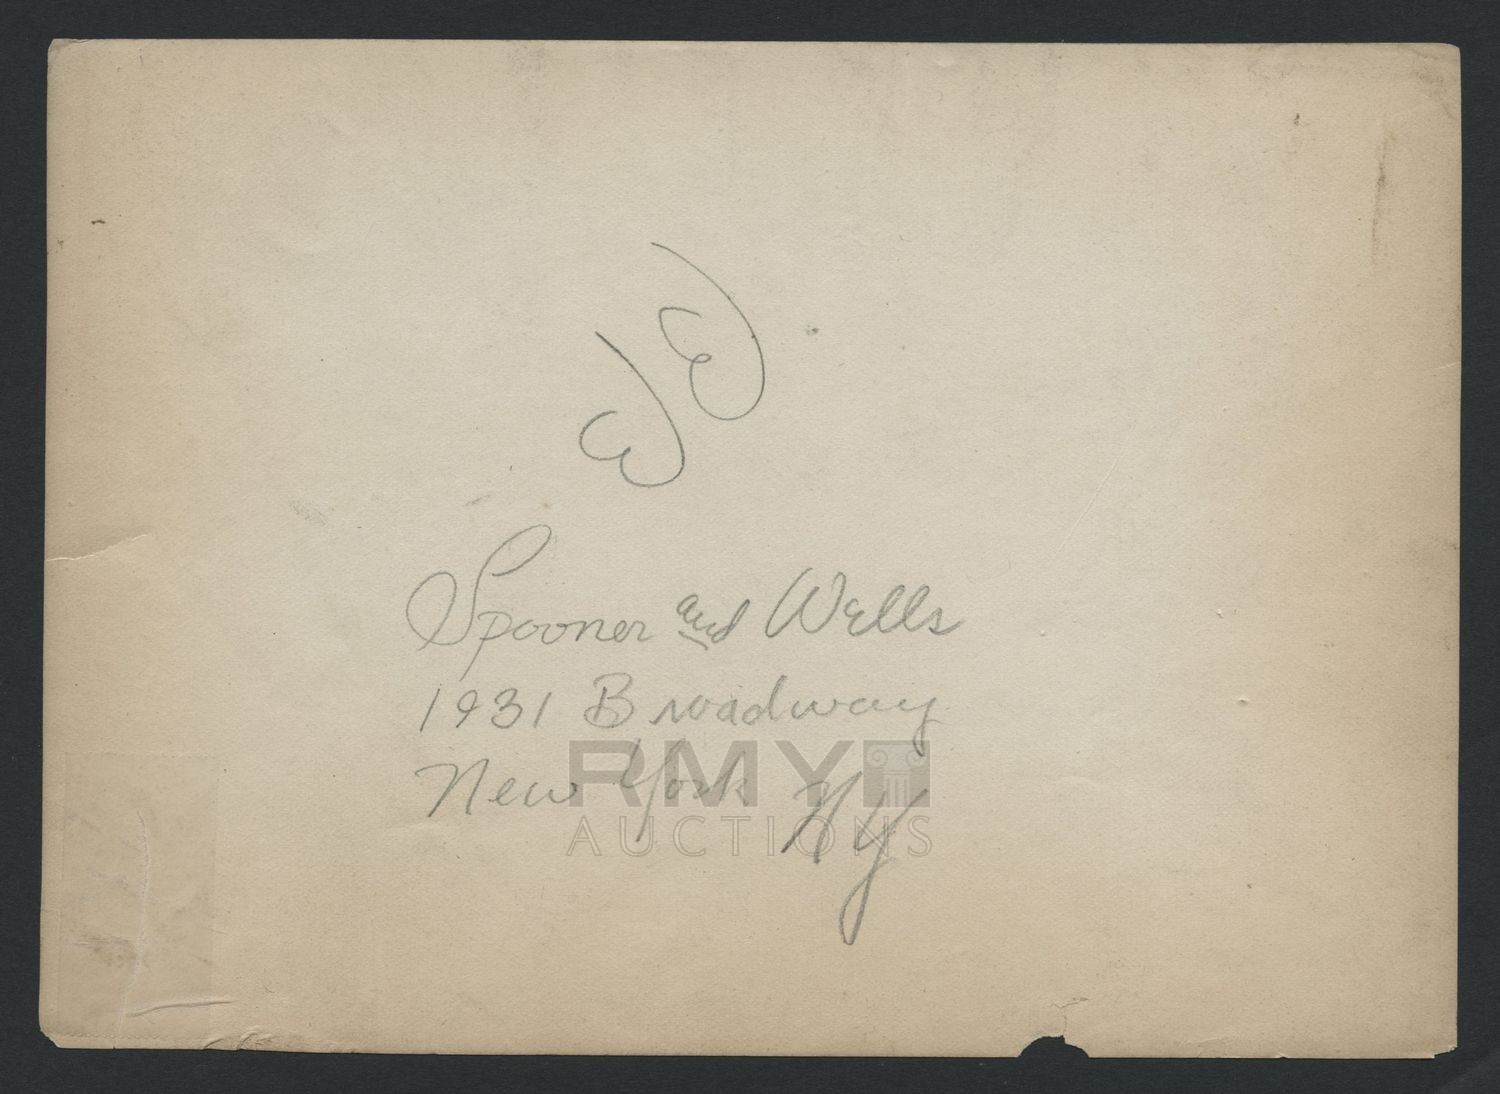 33
Spooner and Wells
1931 Broadway
New York NY
RMY
AUCTIONS